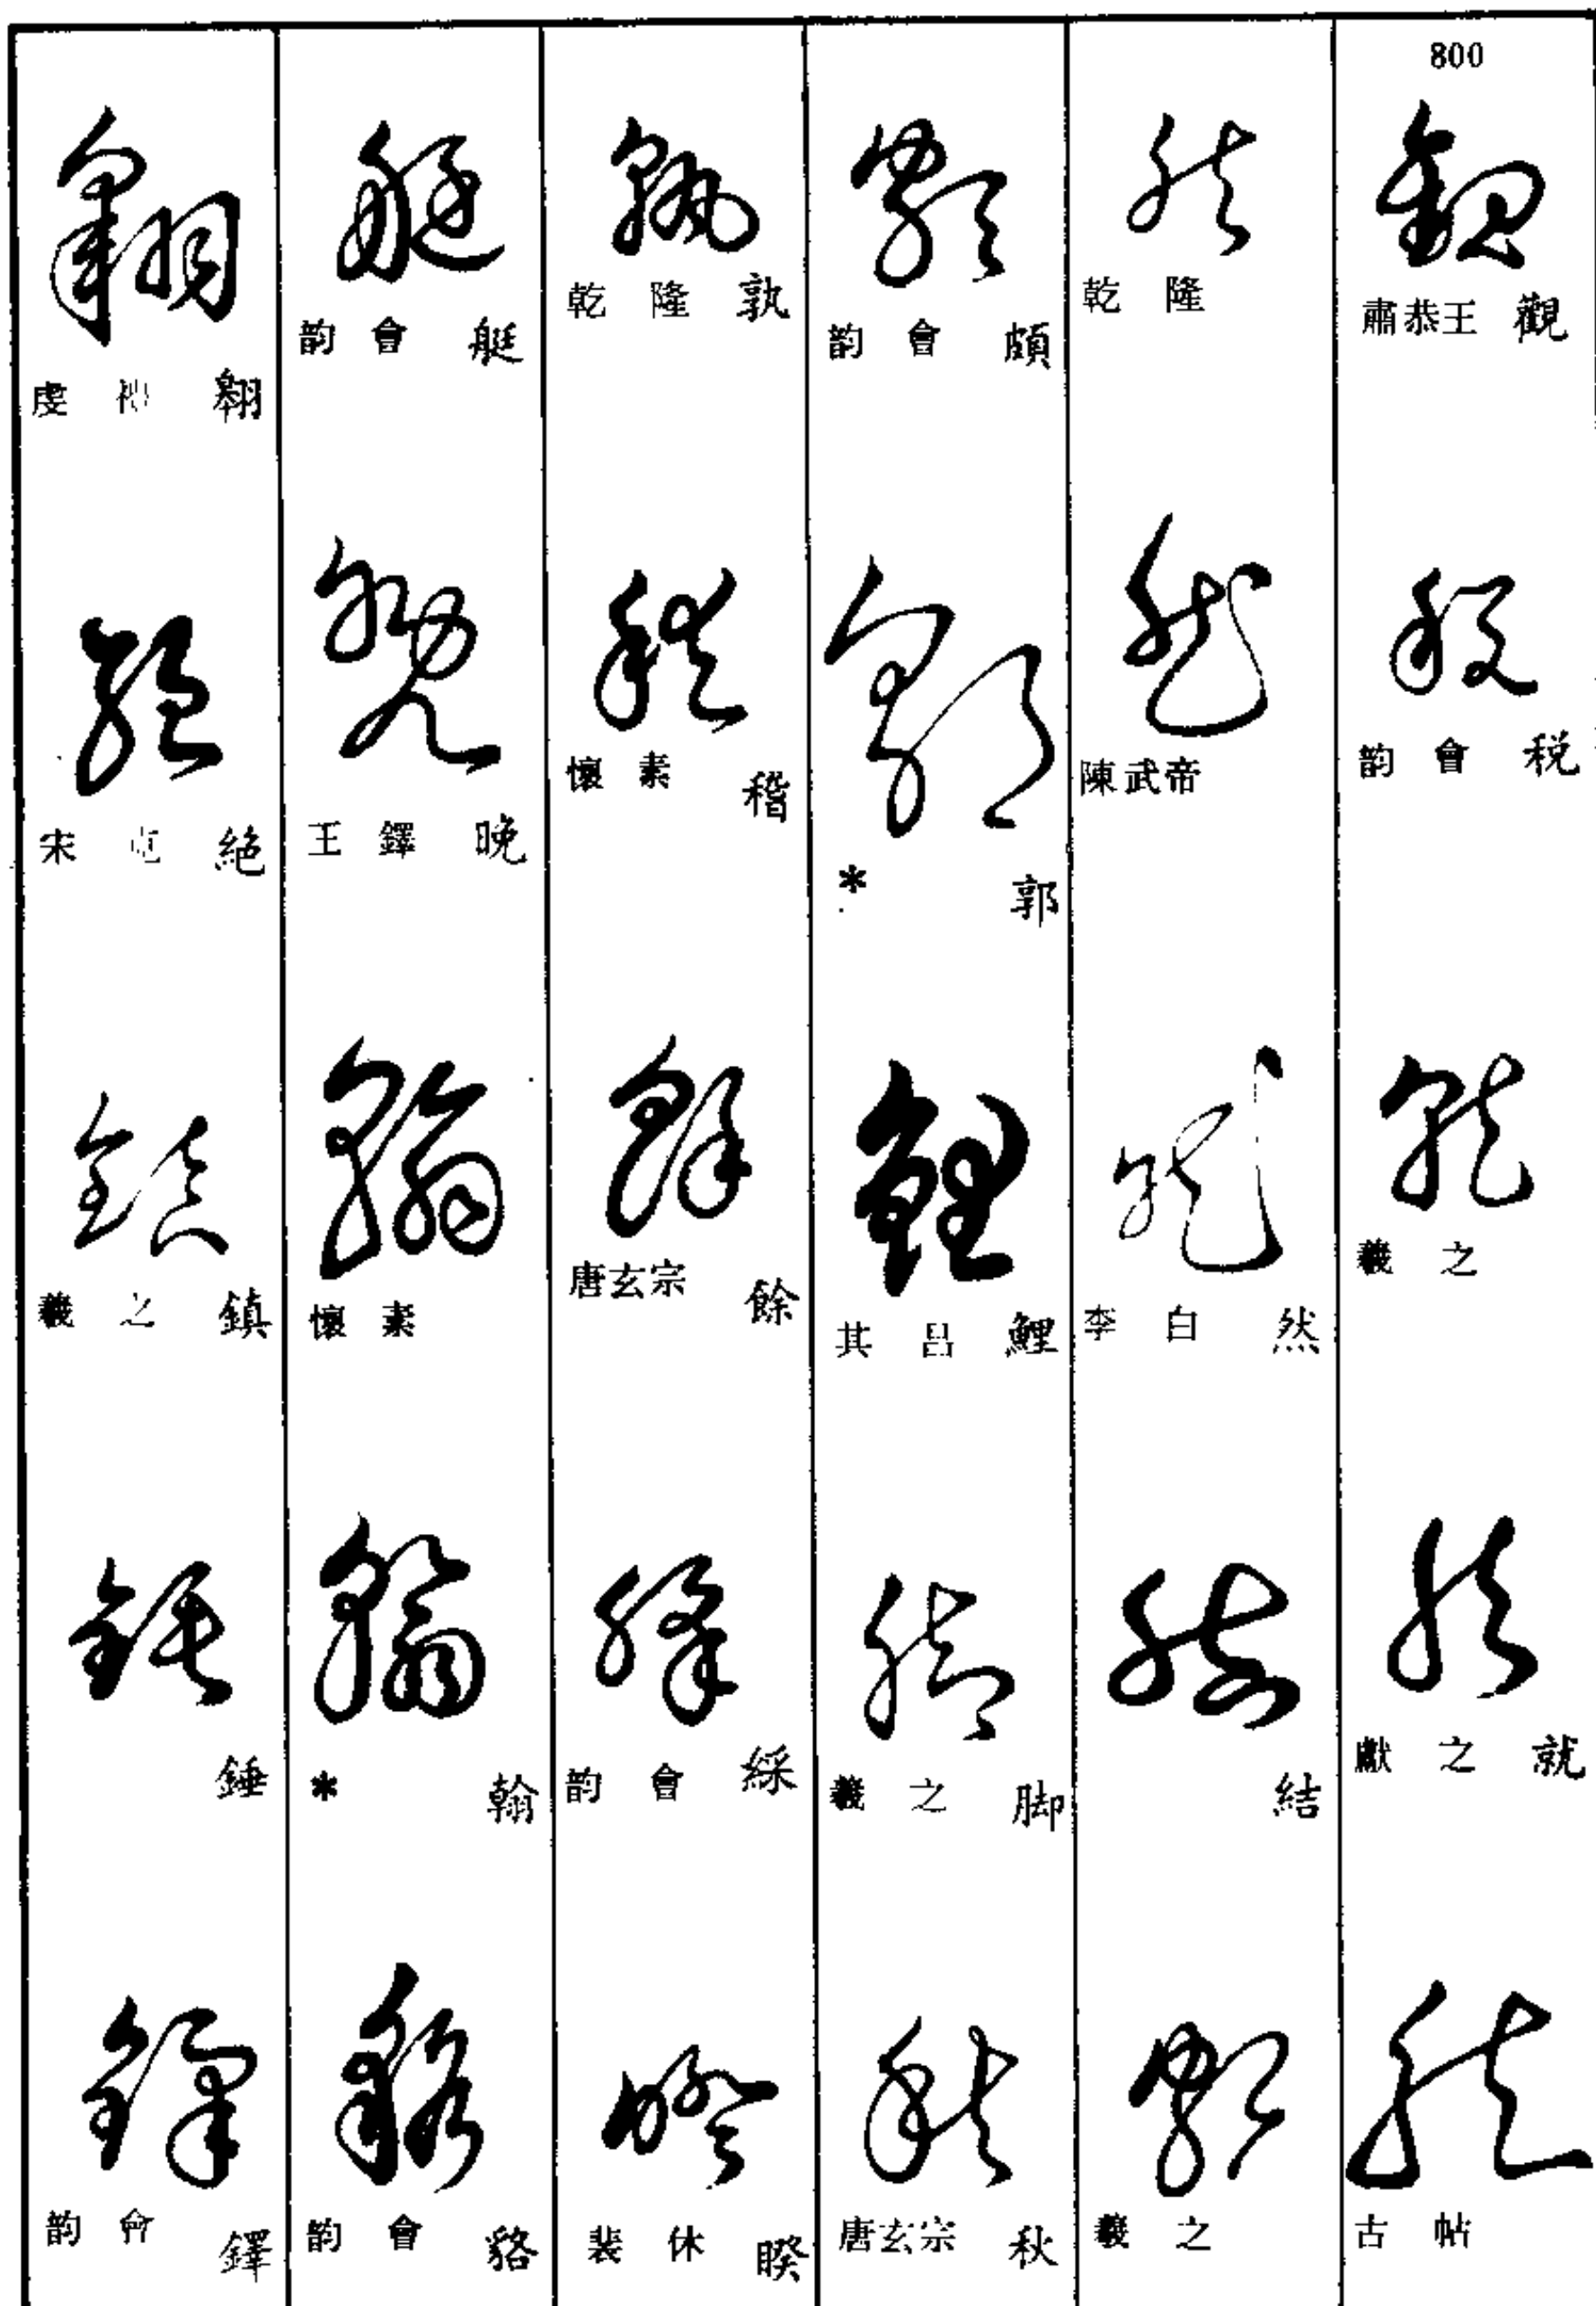 800
肅恭王 觀
韵會 税
羲之
獻之 就
古帖
乾隆
陳武帝
李白 然
結
羲之
韵會 頗
* 郭
其昌 鯉
羲之 脚
唐玄宗 秋
乾隆 孰
懷素 稽
唐玄宗 餘
韵會 綵
裴休 睽
韵會 艇
王鐸 晚
懷素
* 翰
韵會 貉
虔禮 翱
宋克 絕
羲之 鎮
錘
韵會 鐸